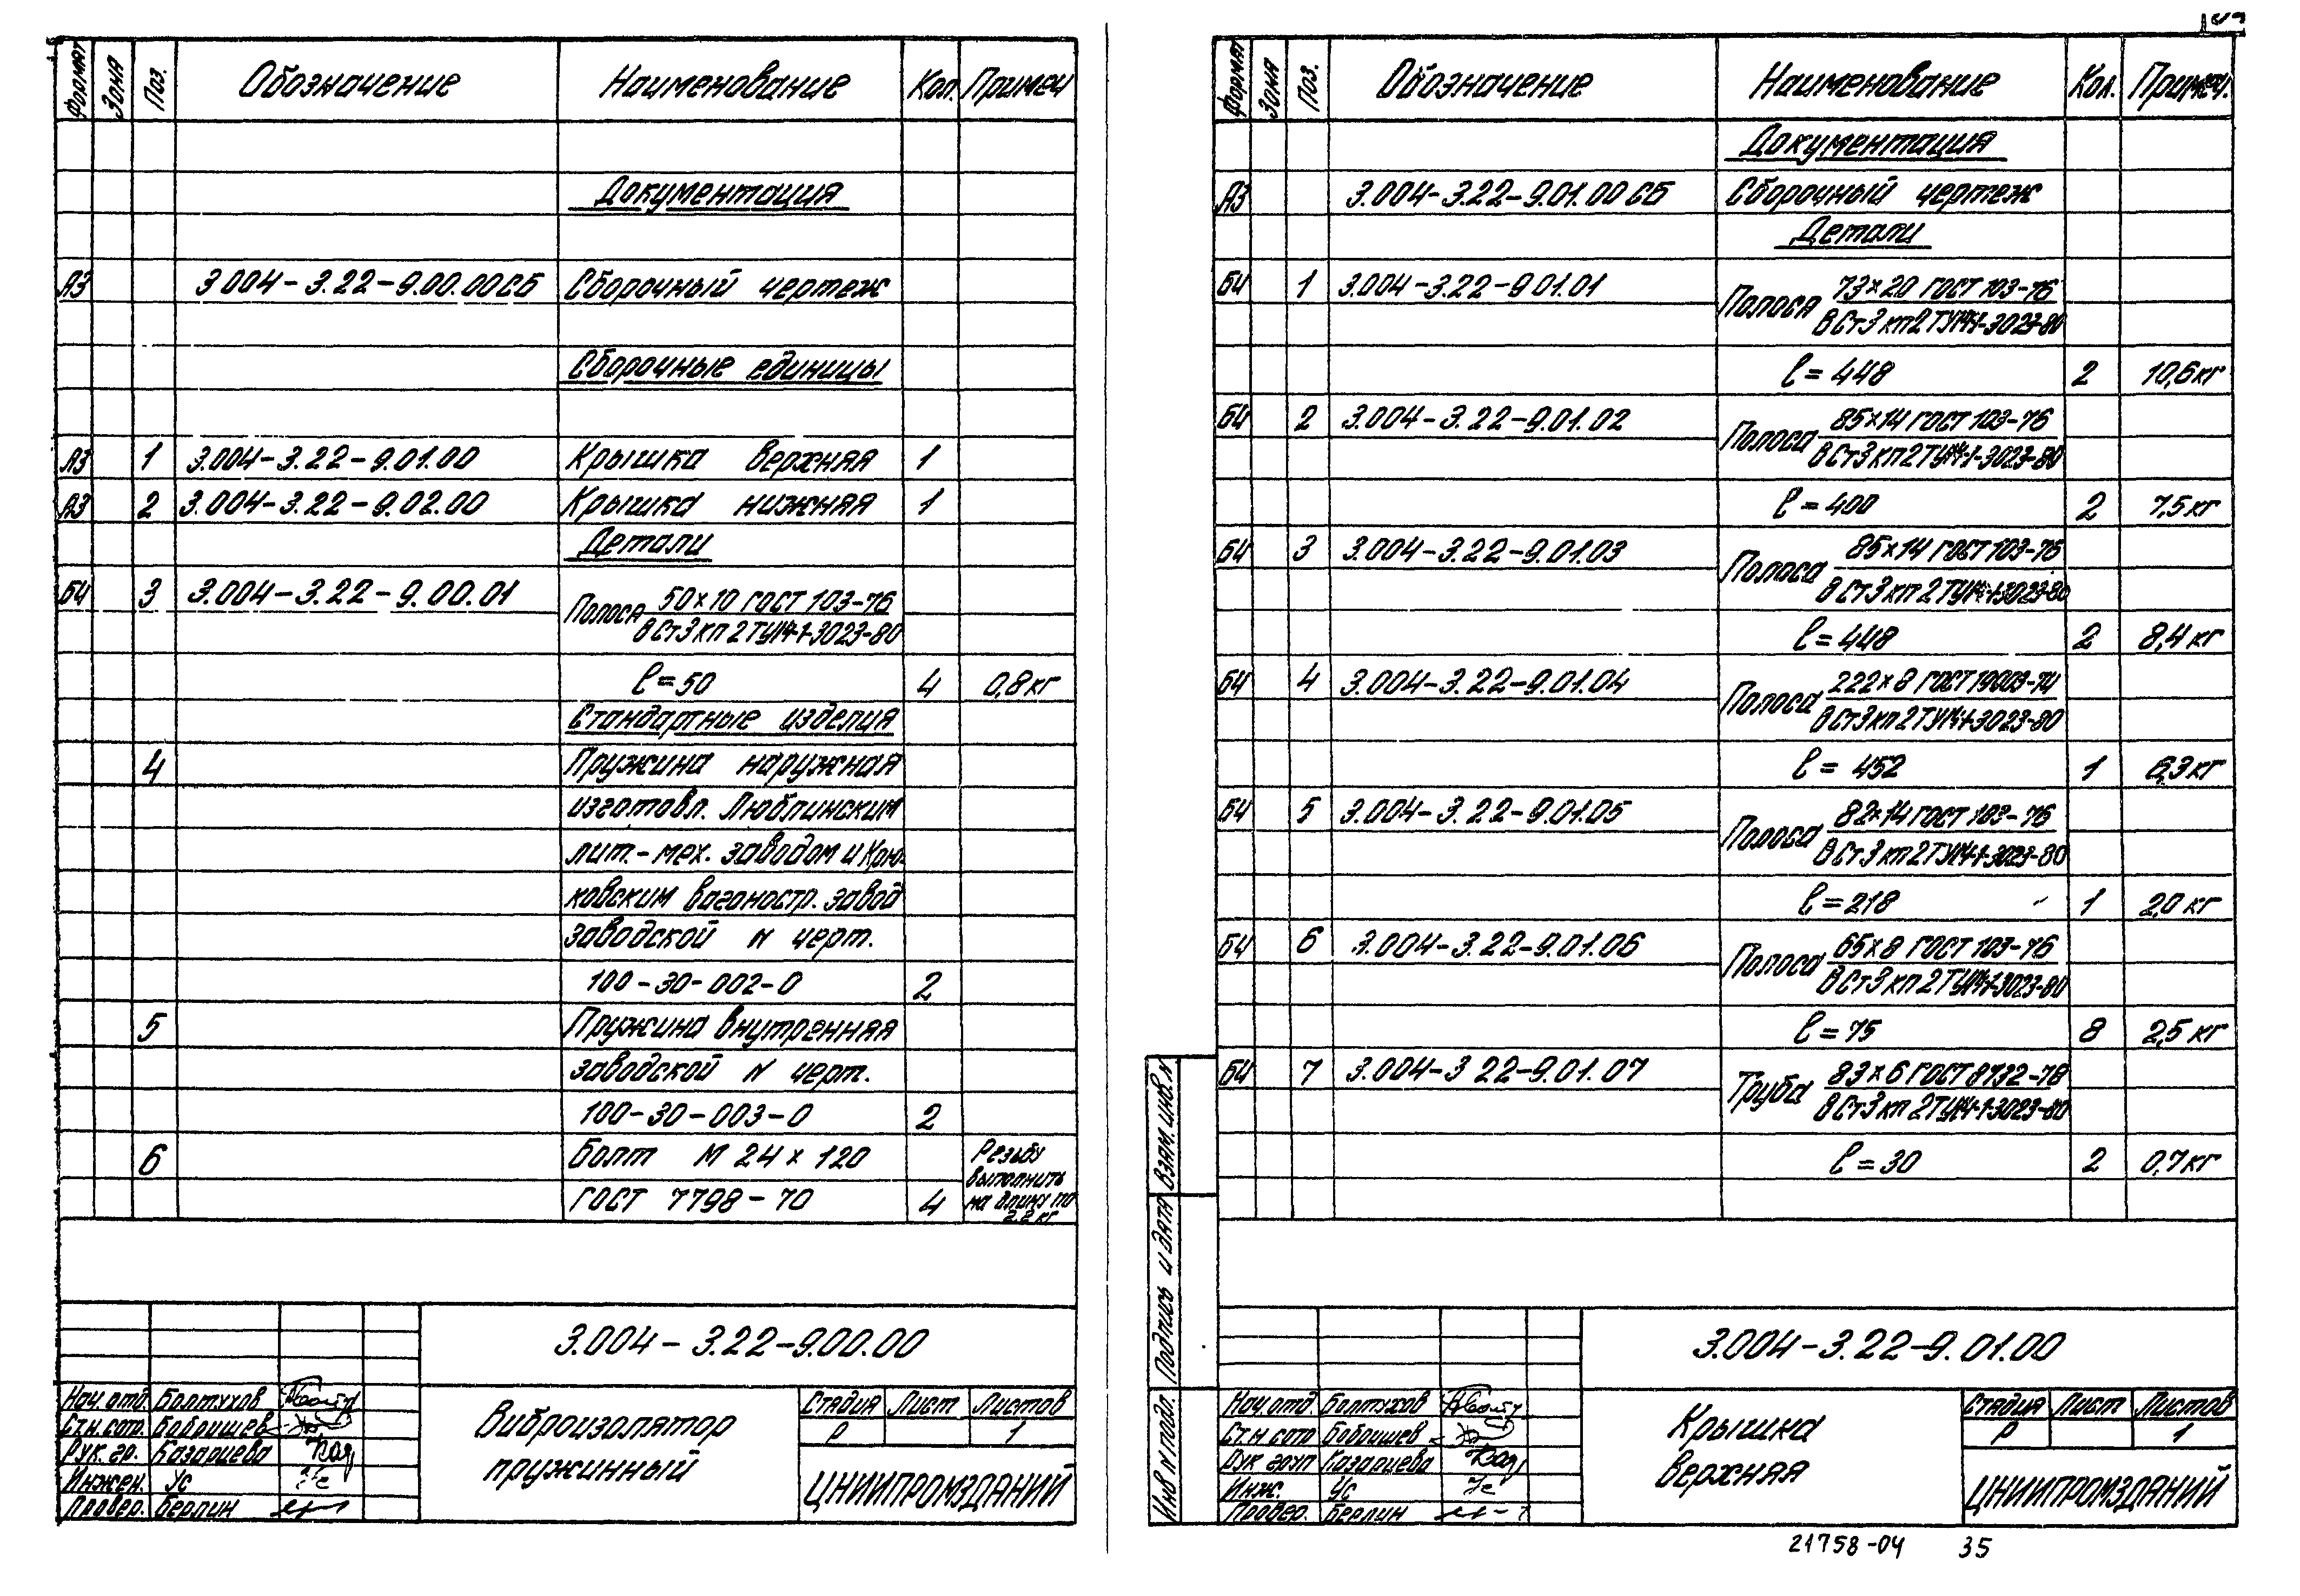 Формат Зона Поз. Обозначение Наименование Кол. Примеч
Документация
А3 3.004-3.22-9.00.00СБ Сборочный чертеж
Сборочные единицы
А3 1 3.004-3.22-9.01.00 Крышка верхняя 1
А3 2 3.004-3.22-9.02.00 Крышка нижняя 1
Детали
БЧ 3 3.004-3.22-9.00.01 Полоса 50×10 ГОСТ 103-76
ВСт3кп2ТУ14-1-3023-80
ℓ=50 4 0,8кг
Стандартные изделия
4 Пружина наружная
изготовл. Люблинским
лит.-мех. заводом и Крю-
ковским вагоностр. завод
заводской N черт.
100-30-002-0 2
5 Пружина внутренняя
заводской N черт.
100-30-003-0 2
6 Болт М24×120 Резьбу
выполнить
ГОСТ 7798-70 4 на длину 110
2.2 кг
3.004-3.22-9.00.00
Нач.отд. Болтухов
Ст.н.сотр. Бобришев
Рук.гр. Казариева
Инжен. Ус
Провер. Берлин
Виброизолятор
пружинный
Стадия Лист Листов
Р 1
ЦНИИПРОМЗДАНИЙ
Формат Зона Поз. Обозначение Наименование Кол. Примеч.
Документация
А3 3.004-3.22-9.01.00СБ Сборочный чертеж
Детали
БЧ 1 3.004-3.22-9.01.01 Полоса 73×20 ГОСТ 103-76
ВСт3кп2ТУ14-1-3023-80
ℓ=448 2 10,6кг
БЧ 2 3.004-3.22-9.01.02 Полоса 85×14 ГОСТ 103-76
ВСт3кп2ТУ14-1-3023-80
ℓ=400 2 7,5кг
БЧ 3 3.004-3.22-9.01.03 Полоса 85×14 ГОСТ 103-76
ВСт3кп2ТУ14-1-3023-80
ℓ=448 2 8,4кг
БЧ 4 3.004-3.22-9.01.04 Полоса 222×8 ГОСТ 19903-74
ВСт3кп2ТУ14-1-3023-80
ℓ=452 1 6,3кг
БЧ 5 3.004-3.22-9.01.05 Полоса 82×14 ГОСТ 103-76
ВСт3кп2ТУ14-1-3023-80
ℓ=218 1 2,0кг
БЧ 6 3.004-3.22-9.01.06 Полоса 65×8 ГОСТ 103-76
ВСт3кп2ТУ14-1-3023-80
ℓ=75 8 2,5кг
БЧ 7 3.004-3 22-9.01.07 Труба 83×6 ГОСТ 8732-78
ВСт3кп2ТУ14-1-3023-80
ℓ=30 2 0,7кг
Взам. инв. N
Подпись и дата
Инв N подл.
3.004-3.22-9.01.00
Нач.отд. Болтухов
Ст.н.сотр Бобришев
Рук груп Казариева
Инж. Ус
Провер. Берлин
Крышка
верхняя
Стадия Лист Листов
Р 1
ЦНИИПРОМЗДАНИЙ
21758-04 35